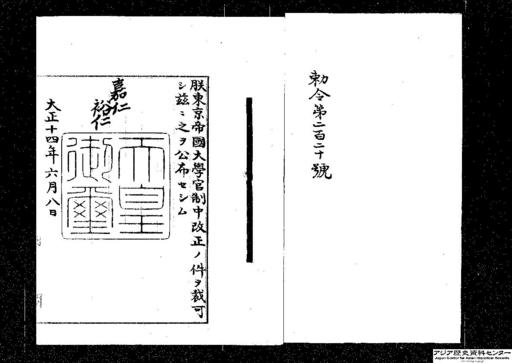 勅令第二百二十號
朕東京帝國大學官制中改正ノ件ヲ裁可
シ茲ニ之ヲ公布セシム
嘉仁
裕仁
天皇御璽
大正十四年六月八日
アジア歴史資料センター
Japan Center for Asian Historical Records